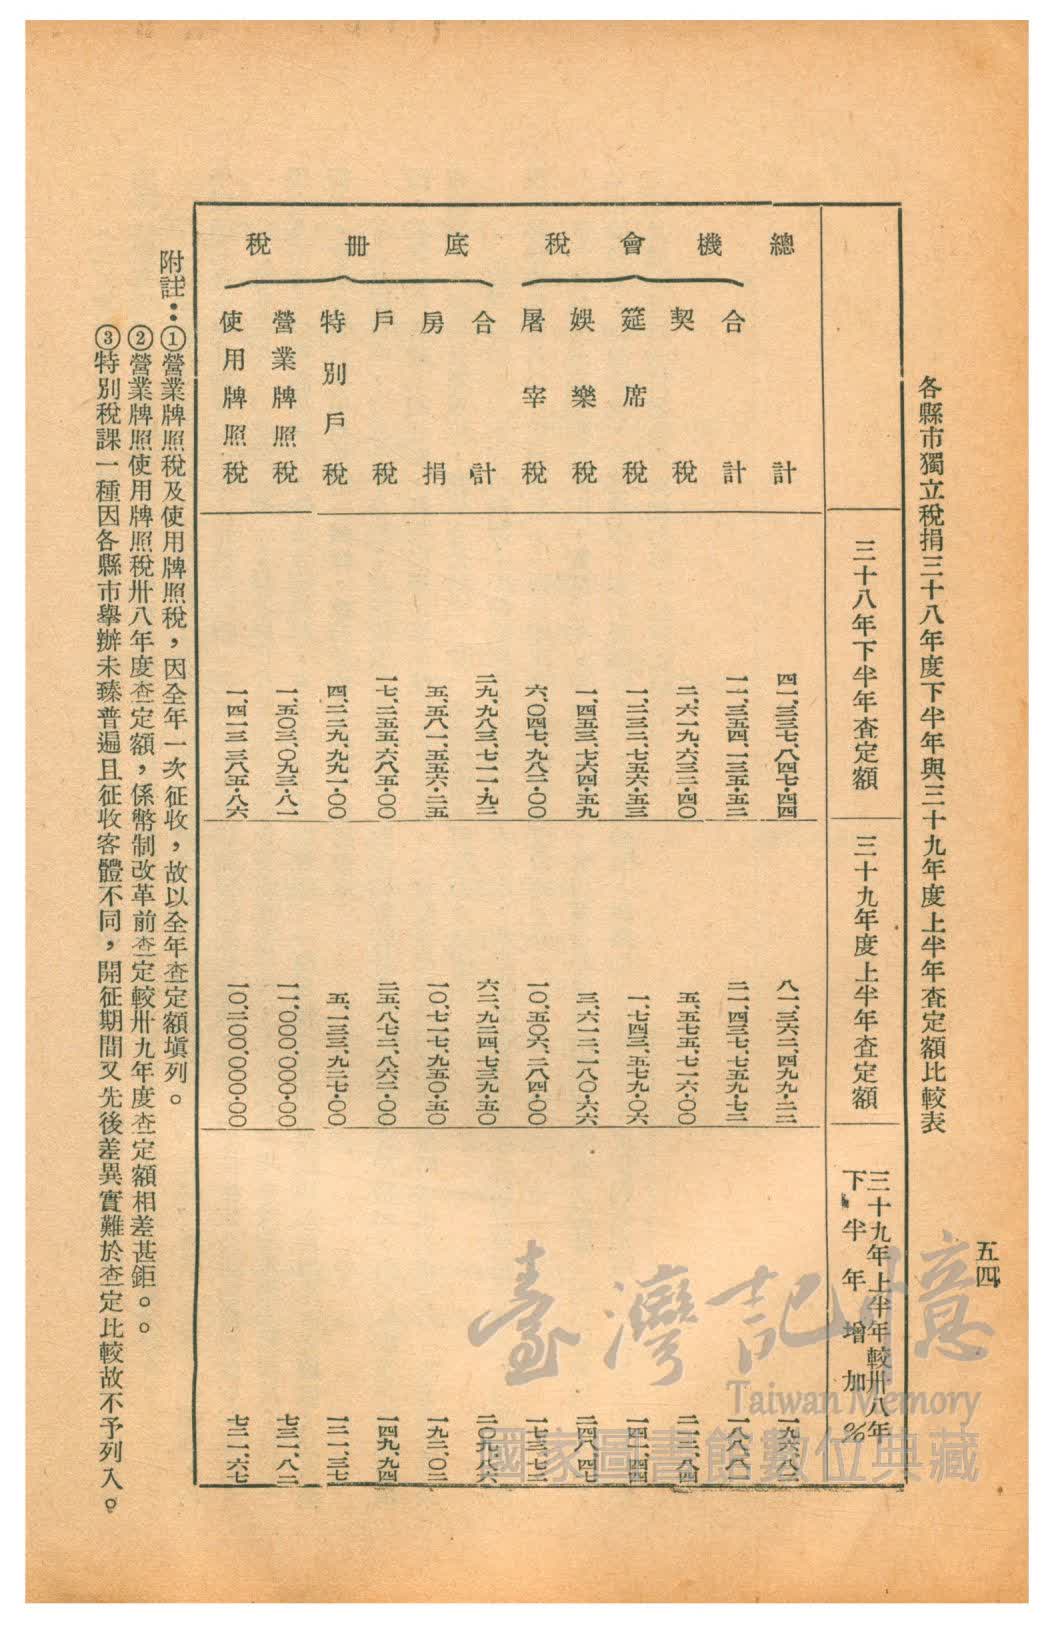 五四
各縣市獨立稅捐三十八年度下半年與三十九年度上半年查定額比較表
三十八年下半年查定額
三十九年度上半年查定額
三十九年上半年較卅八年
下半年增加%
總計 四一、三三七、八四七.四四 八一、三六二、四九九.二二 一九六.八二
機會稅
合計 一一、三五四、一三五.五二 二一、四三七、七五九.七二 一八八.八一
契稅 二、六一九、六三二.四〇 五、五七五、七一六.〇〇 二一二.八四
筵席稅 一、二三二、七五六.五三 一、七四三、五七九.〇六 一四一.四四
娛樂稅 一、四五三、七六四.五九 三、六一二、一八〇.六六 二四八.四七
屠宰稅 六、〇四七、九八二.〇〇 一〇、五〇六、二八四.〇〇 一七三.七二
底冊稅
合計 二九、九八三、七一一.九二 六二、九二四、七三九.五〇 二〇九.八六
房捐 五、五八一、五五六.二五 一〇、七一七、九五〇.五〇 一九二.〇二
戶稅 一七、二五五、六八五.〇〇 二五、八七二、八六二.〇〇 一四九.九四
特別戶稅 四、二二九、九九一.〇〇 五、一三三、九二七.〇〇 一二一.三七
營業牌照稅 一、五〇三、〇九三.八一 一一、〇〇〇、〇〇〇.〇〇 七三一.八二
使用牌照稅 一、四一三、三八五.八六 一〇、二〇〇、〇〇〇.〇〇 七二一.六七
附註：①營業牌照稅及使用牌照稅，因全年一次征收，故以全年查定額填列。
②營業牌照使用牌照稅卅八年度查定額，係幣制改革前查定較卅九年度查定額相差甚鉅。。
③特別稅課一種因各縣市舉辦未臻普遍且征收客體不同，開征期間又先後差異實難於查定比較故不予列入。
臺灣記憶
Taiwan Memory
國家圖書館數位典藏